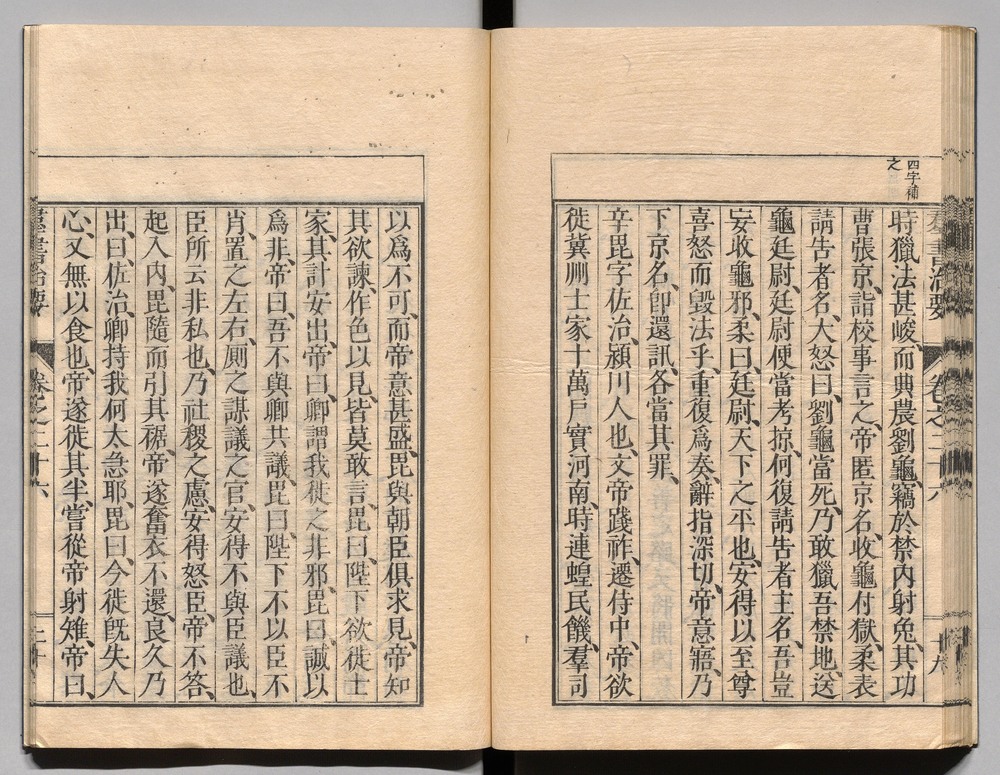 四字補
之
羣書治要 卷之二十六 十九
時獵法甚峻、而典農劉龜、竊於禁內射兔、其功
曹張京、詣校事言之、帝匿京名、收龜付獄、柔表
請告者名、大怒曰、劉龜當死、乃敢獵吾禁地、送
龜廷尉、廷尉便當考掠、何復請告者主名、吾豈
妄收龜邪、柔曰、廷尉、天下之平也、安得以至尊
喜怒而毀法乎、重復爲奏、辭指深切、帝意寤、乃
下京名、卽還訊、各當其罪、
辛毘字佐治、潁川人也、文帝踐祚、遷侍中、帝欲
徙冀州士家十萬戶實河南、時連蝗民饑、羣司
以爲不可、而帝意甚盛、毘與朝臣俱求見、帝知
其欲諫、作色以見、皆莫敢言、毘曰、陛下欲徙士
家、其計安出、帝曰、卿謂我徙之非邪、毘曰、誠以
爲非、帝曰、吾不與卿共議、毘曰、陛下不以臣不
肖、置之左右、廁之謀議之官、安得不與臣議也、
臣所云非私也、乃社稷之慮、安得怒臣、帝不答、
起入內、毘隨而引其裾、帝遂奮衣不還、良久乃
出曰、佐治、卿持我何太急耶、毘曰、今徙既失人
心、又無以食也、帝遂徙其半、嘗從帝射雉、帝曰、
羣書治要 卷之二十六 二十